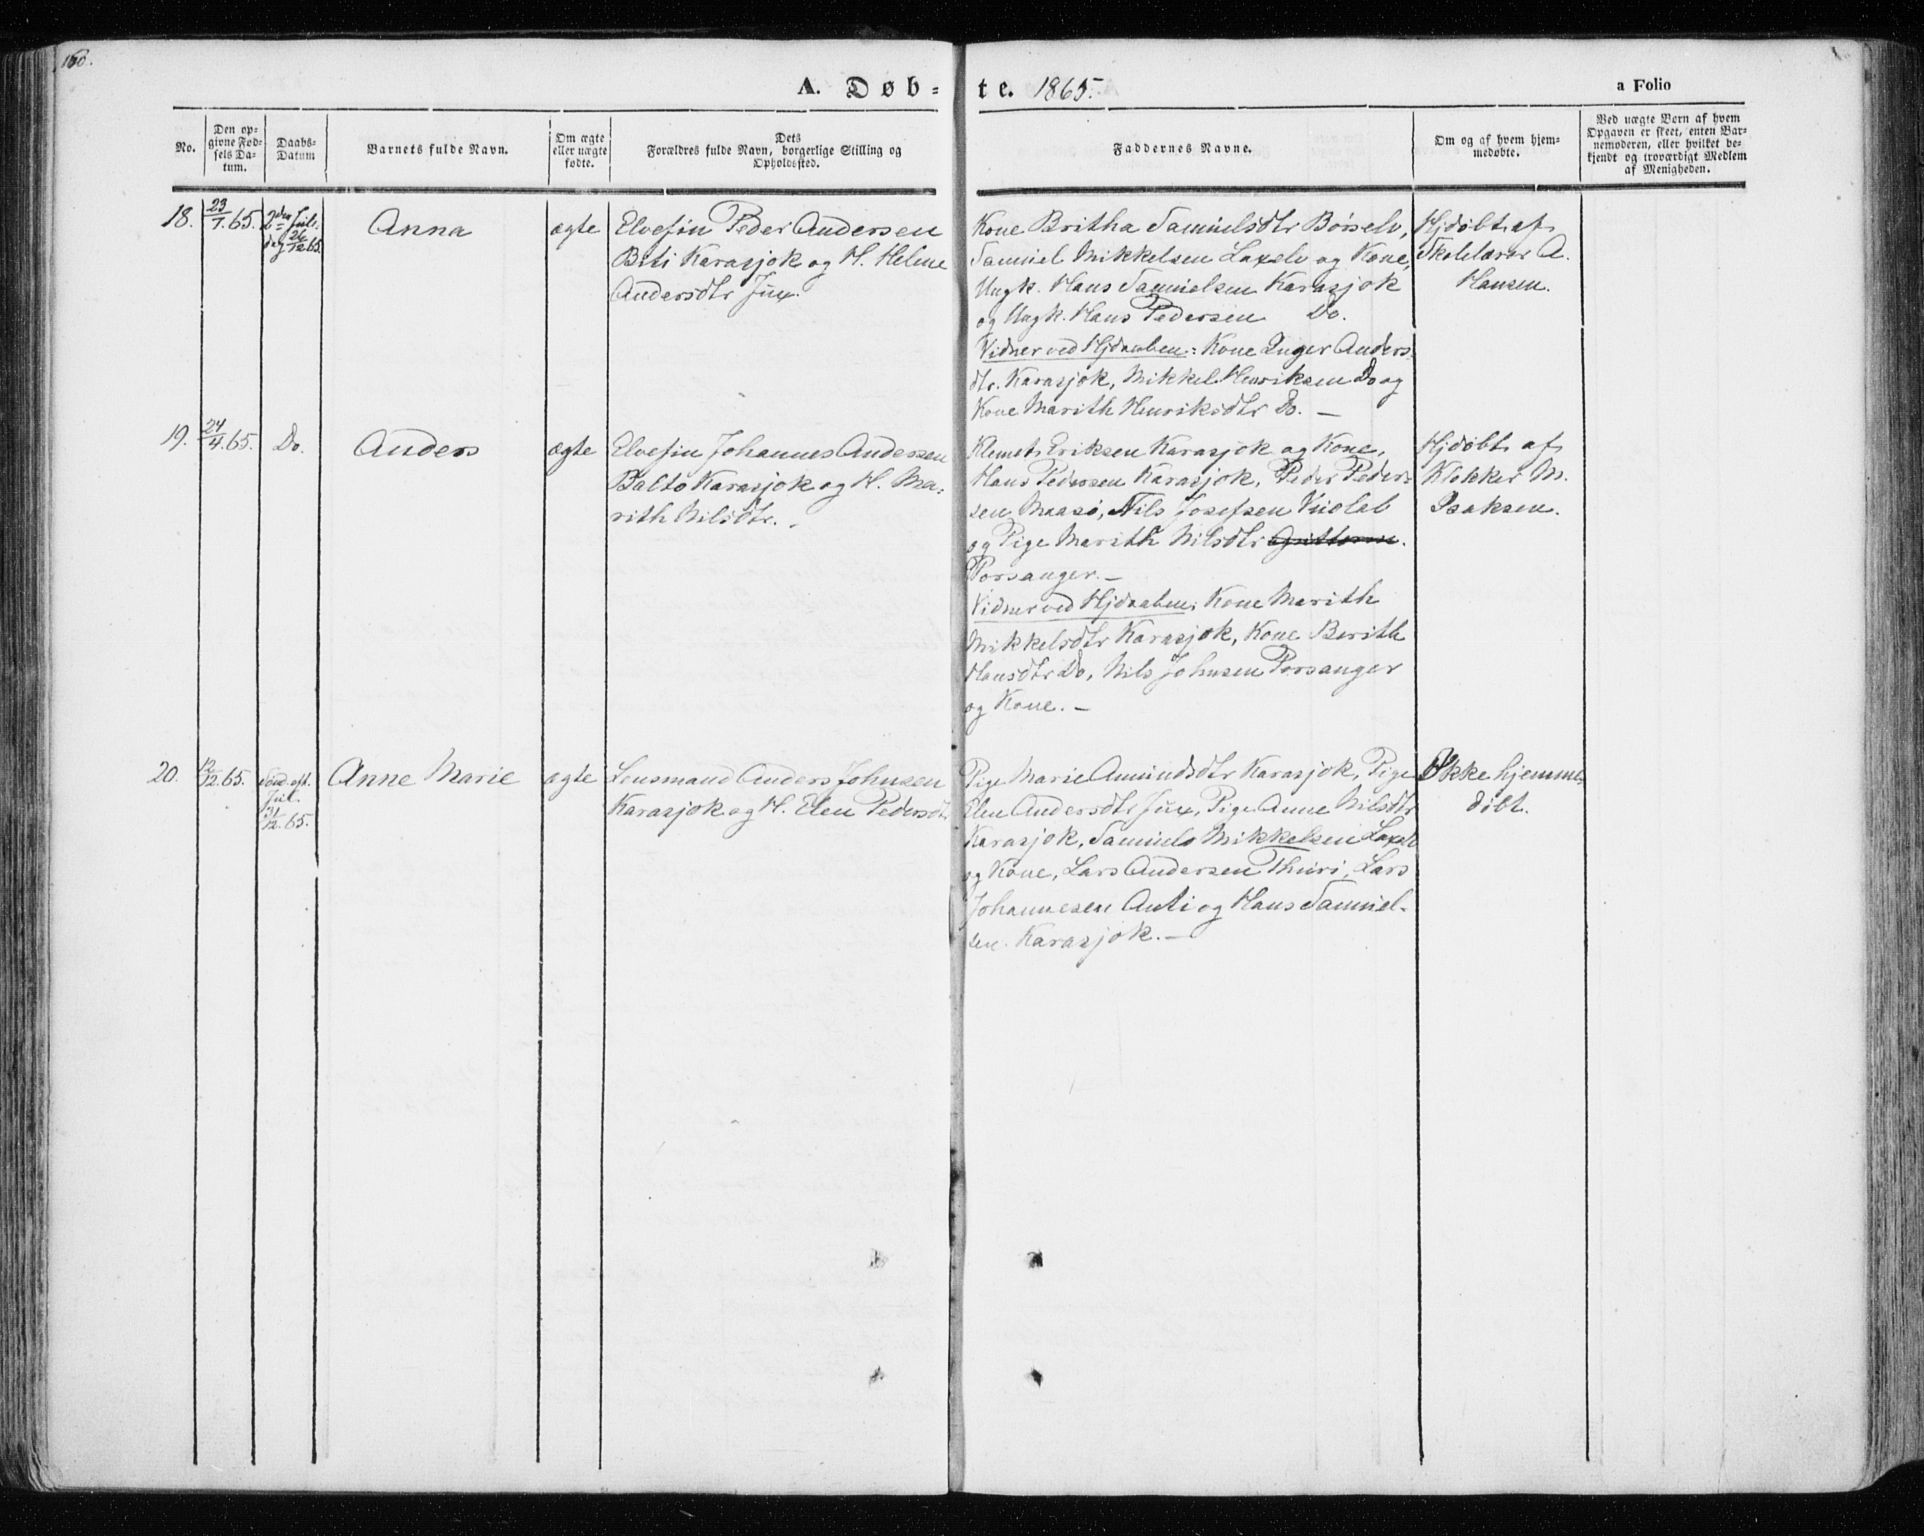 160.
A. Døb-
te. 1865.
a Folio
No.
Den op-
givne Fød-
sels Da-
tum.
Daabs-
Datum
Barnets fulde Navn.
Om ægte
eller uægte
fødte.
Dets
Forældres fulde Navn, borgerlige Stilling og
Opholdssted.
Faddernes Navne.
Om og af hvem hjem-
medøbte.
Ved uægte Børn af hvem
Opgaven er skeet, enten Bar-
nemoderen, eller hvilket be-
kjendt og troværdigt Medlem
af Menigheden.
18.
23/7.65.
2den Jule-
dag 26/12 65.
Anna
ægte
Elvefin Peder Andersen
Biti Karasjok og H. Helene
Andersdtr Jux.
Kone Britha Samuelsdtr Børselv,
Samuel Mikkelsen Laxelv og Kone,
Ungk. Hans Samuelsen Karasjok
og Ungk. Hans Pedersen Do.
Vidner ved Hjdaaben: Kone Inger Anders-
dtr. Karasjok, Mikkel Henriksen Do og
Kone Marith Henriksdtr Do. —
Hjdøbt af
Skolelærer A.
Hansen.
19.
24/4.65.
Do.
Anders
ægte
Elvefin Johannes Andersen
Balto Karasjok og H. Ma-
rith Nilsdtr.
Klemet Eriksen Karasjok og Kone,
Hans Pedersen Karasjok, Peder Peder-
sen Maasø, Nils Josefsen Vuolab
og Pige Marith Nilsdtr
Porsanger. —
Vidner ved Hjdaaben: Kone Marith
Mikkelsdtr Karasjok, Kone Berith
Hansdtr Do, Nils Johnsen Porsanger
og Kone. —
Hjdøbt af
Klokker M.
Isaksen.
20.
12/12.65.
Sønd. eft.
Jul.
31/12.65.
Anne Marie
ægte
Lensmand Anders Johnsen
Karasjok og H. Elen Pedersdtr.
Pige Marie Amundsdtr Karasjok, Pige
Elen Andersdtr Jux, Pige Anne Nilsdtr
Karasjok, Samuels Mikkelsen Laxelv
og Kone, Lars Andersen Thuri, Lars
Johannesen Anti og Hans Samuel-
sen Karasjok. —
Ikke hjemme-
døbt.